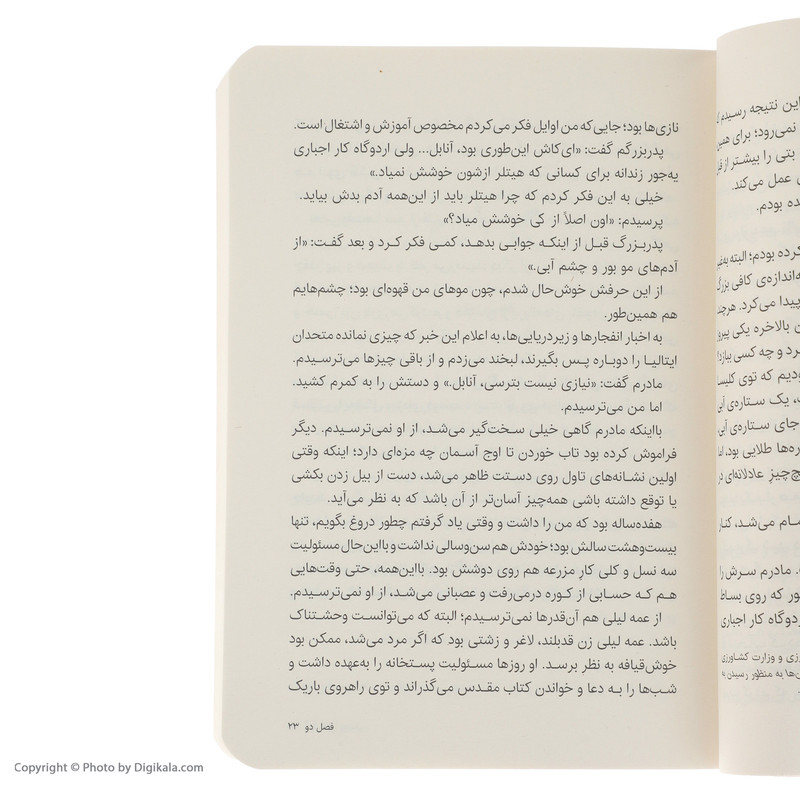 نازی‌ها بود؛ جایی‌که من اوایل فکر می‌کردم مخصوص آموزش و اشتغال است.
پدربزرگم گفت: «ای‌کاش این‌طوری بود، آنابل... ولی اردوگاه کار اجباری
یه‌جور زندانه برای کسانی که هیتلر ازشون خوشش نمیاد.»
خیلی به این فکر کردم که چرا هیتلر باید از این‌همه آدم بدش بیاید.
پرسیدم: «اون اصلاً از کی خوشش میاد؟»
پدربزرگ قبل از اینکه جوابی بدهد، کمی فکر کرد و بعد گفت: «از
آدم‌های مو بور و چشم آبی.»
از این حرفش خوش‌حال شدم، چون موهای من قهوه‌ای بود؛ چشم‌هایم
هم همین‌طور.
به اخبار انفجارها و زیردریایی‌ها، به اعلام این خبر که چیزی نمانده متحدان
ایتالیا را دوباره پس بگیرند، لبخند می‌زدم و از باقی چیزها می‌ترسیدم.
مادرم گفت: «نیازی نیست بترسی، آنابل.» و دستش را به کمرم کشید.
اما من می‌ترسیدم.
بااینکه مادرم گاهی خیلی سخت‌گیر می‌شد، از او نمی‌ترسیدم. دیگر
فراموش کرده بود تاب خوردن تا اوج آسمان چه مزه‌ای دارد؛ اینکه وقتی
اولین نشانه‌های تاول روی دستت ظاهر می‌شد، دست از بیل زدن بکشی
یا توقع داشته باشی همه‌چیز آسان‌تر از آن باشد که به نظر می‌آید.
هفده‌ساله بود که من را داشت و وقتی یاد گرفتم چطور دروغ بگویم، تنها
بیست‌وهشت سالش بود؛ خودش هم سن‌وسالی نداشت و بااین‌حال مسئولیت
سه نسل و کلی کار مزرعه هم روی دوشش بود. بااین‌همه، حتی وقت‌هایی
هم که حسابی از کوره درمی‌رفت و عصبانی می‌شد، از او نمی‌ترسیدم.
از عمه لیلی هم آن‌قدرها نمی‌ترسیدم؛ البته که می‌توانست وحشتناک
باشد. عمه لیلی زن قدبلند، لاغر و زشتی بود که اگر مرد می‌شد، ممکن بود
خوش‌قیافه به نظر برسد. او روزها مسئولیت پستخانه را به‌عهده داشت و
شب‌ها را به دعا و خواندن کتاب مقدس می‌گذراند و توی راهروی باریک
فصل دو ۲۳
این نتیجه رسیدم
نمی‌رود؛ برای همین
بتی را بیشتر از
عمل می‌کند.
بودم.
کرده بودم؛ البته
به‌اندازه‌ی کافی بزرگ
پیدا می‌کرد. هرچند
بالاخره یکی
و چه کسی
که توی
یک ستاره‌ی آبی
جای ستاره‌ی آبی،
طلایی بود، اما
عادلانه‌ای در
می‌شد، کنار
مادرم سرش را
که روی بساط
کار اجباری
و وزارت کشاورزی
به منظور رسیدن به
Copyright © Photo by Digikala.com